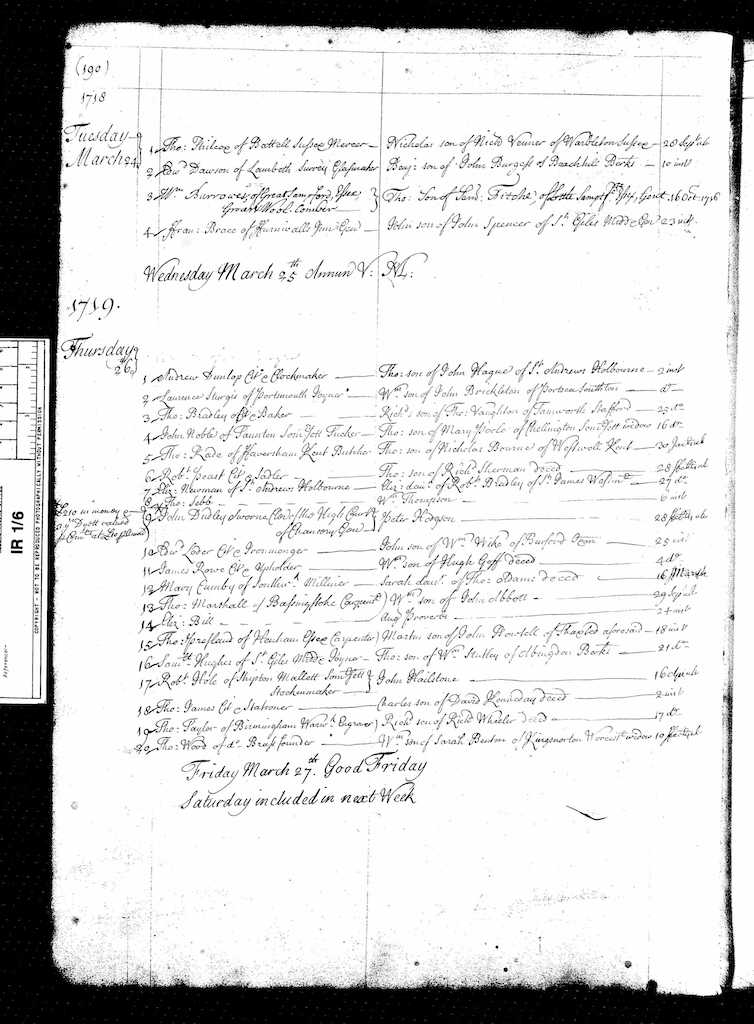 (190)
1718
Tuesday
March 24
1 Tho: Philcox of Battell Sussex Mercer — Nicholas son of Nichs Venner of Warbleton Sussex — 20 Septr
2 Edwd Dawson of Lambeth Surrey Glassmaker Benj: son of John Burgess of Beachhill Berks — 10 inst
3 Wm Burrowes of Great Sampford Essex Tho: Son of Saml Fitche of Little Sampfd Essex Gent 16 Oct 1716
Wool Comber
4 Fran: Brace of Furnivalls Inn Gen John son of John Spencer of St Giles Middx Gen 23 inst
Wednesday March 25th Annun V: M:
1719.
Thursday
26
1 Andrew Dunlop Citn & Clockmaker — Tho: son of John Hague of St Andrews Holbourne — 2 inst
2 Laurence Sturgis of Portsmouth Joyner Wm son of John Brickleton of Portsea Southton — do
3 Tho: Bradley Cit & Baker Richd son of Tho: Vaughton of Tamworth Stafford — 25 do
4 John Noble of Taunton Somersett Fucker — Tho: son of Mary Poole of Chellington Somersett widow 16 do
5 Tho: Rade of Faversham Kent Butcher Tho: son of Nicholas Bourne of Westwell Kent — 30
6 Robt Peast Cit & Sadler Tho: son of Richd Sherman deced — 28
7 Eliz: Newman of St Andrews Holbourne — Eliz: daur of Robt Bradley of St James Westmr — 27 do
8 Tho: Tebb Wm Thompson — 6 inst
£210 in money &
9 John Dudley sworne Clerk of the High Court Peter Hodgson — 28
of Chancery Gen
10 Edwd Loder Cit & Ironmonger John son of Wm Wike of Burford — 25 inst
11 James Rowe Cit & Upholder Wm son of Hugh Goff deced — 4 do
12 Mary Cumby of Southwk Millener — Sarah daur of Tho: Adams deced — 16 March
13 Tho: Marshall of Bassingstoke Wm son of John Abbott — 29
14 Eliz: Bill — Aug Proverbs — 24 inst
15 Tho: Presland of Henham Essex Carpenter Martin son of John Howsell of Thaxted aforesd — 18 inst
16 Samll Hughes of St Giles Middx Joyner — Tho: son of Wm Stutley of Abingdon Berks — 21 do
17 Robt Hole of Shepton Mallett Somersett John Hailstone — 16
Stockenmaker
18 Tho: James Cit & Stationer — Charles son of David Kenneday deced — 2 inst
19 Tho: Taylor of Birmingham Warwk Engraver Richd son of Richd Wheeler deced — 17 do
20 Tho: Ward of do Brassfounder — Wm son of Sarah Benton of Kingsnorton Worcestr widow 10
Friday March 27th. Good Friday
Saturday included in next Week
IR 1/6
COPYRIGHT - NOT TO BE REPRODUCED PHOTOGRAPHICALLY WITHOUT PERMISSION
Reference:-